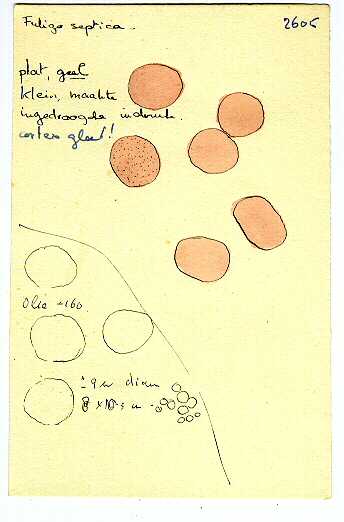 Fuligo septica. 2605
plat, geel
klein, maakte
ingedroogde indruk.
cortex glad!
Olie ×160
± 9 µ diam
8 × 10